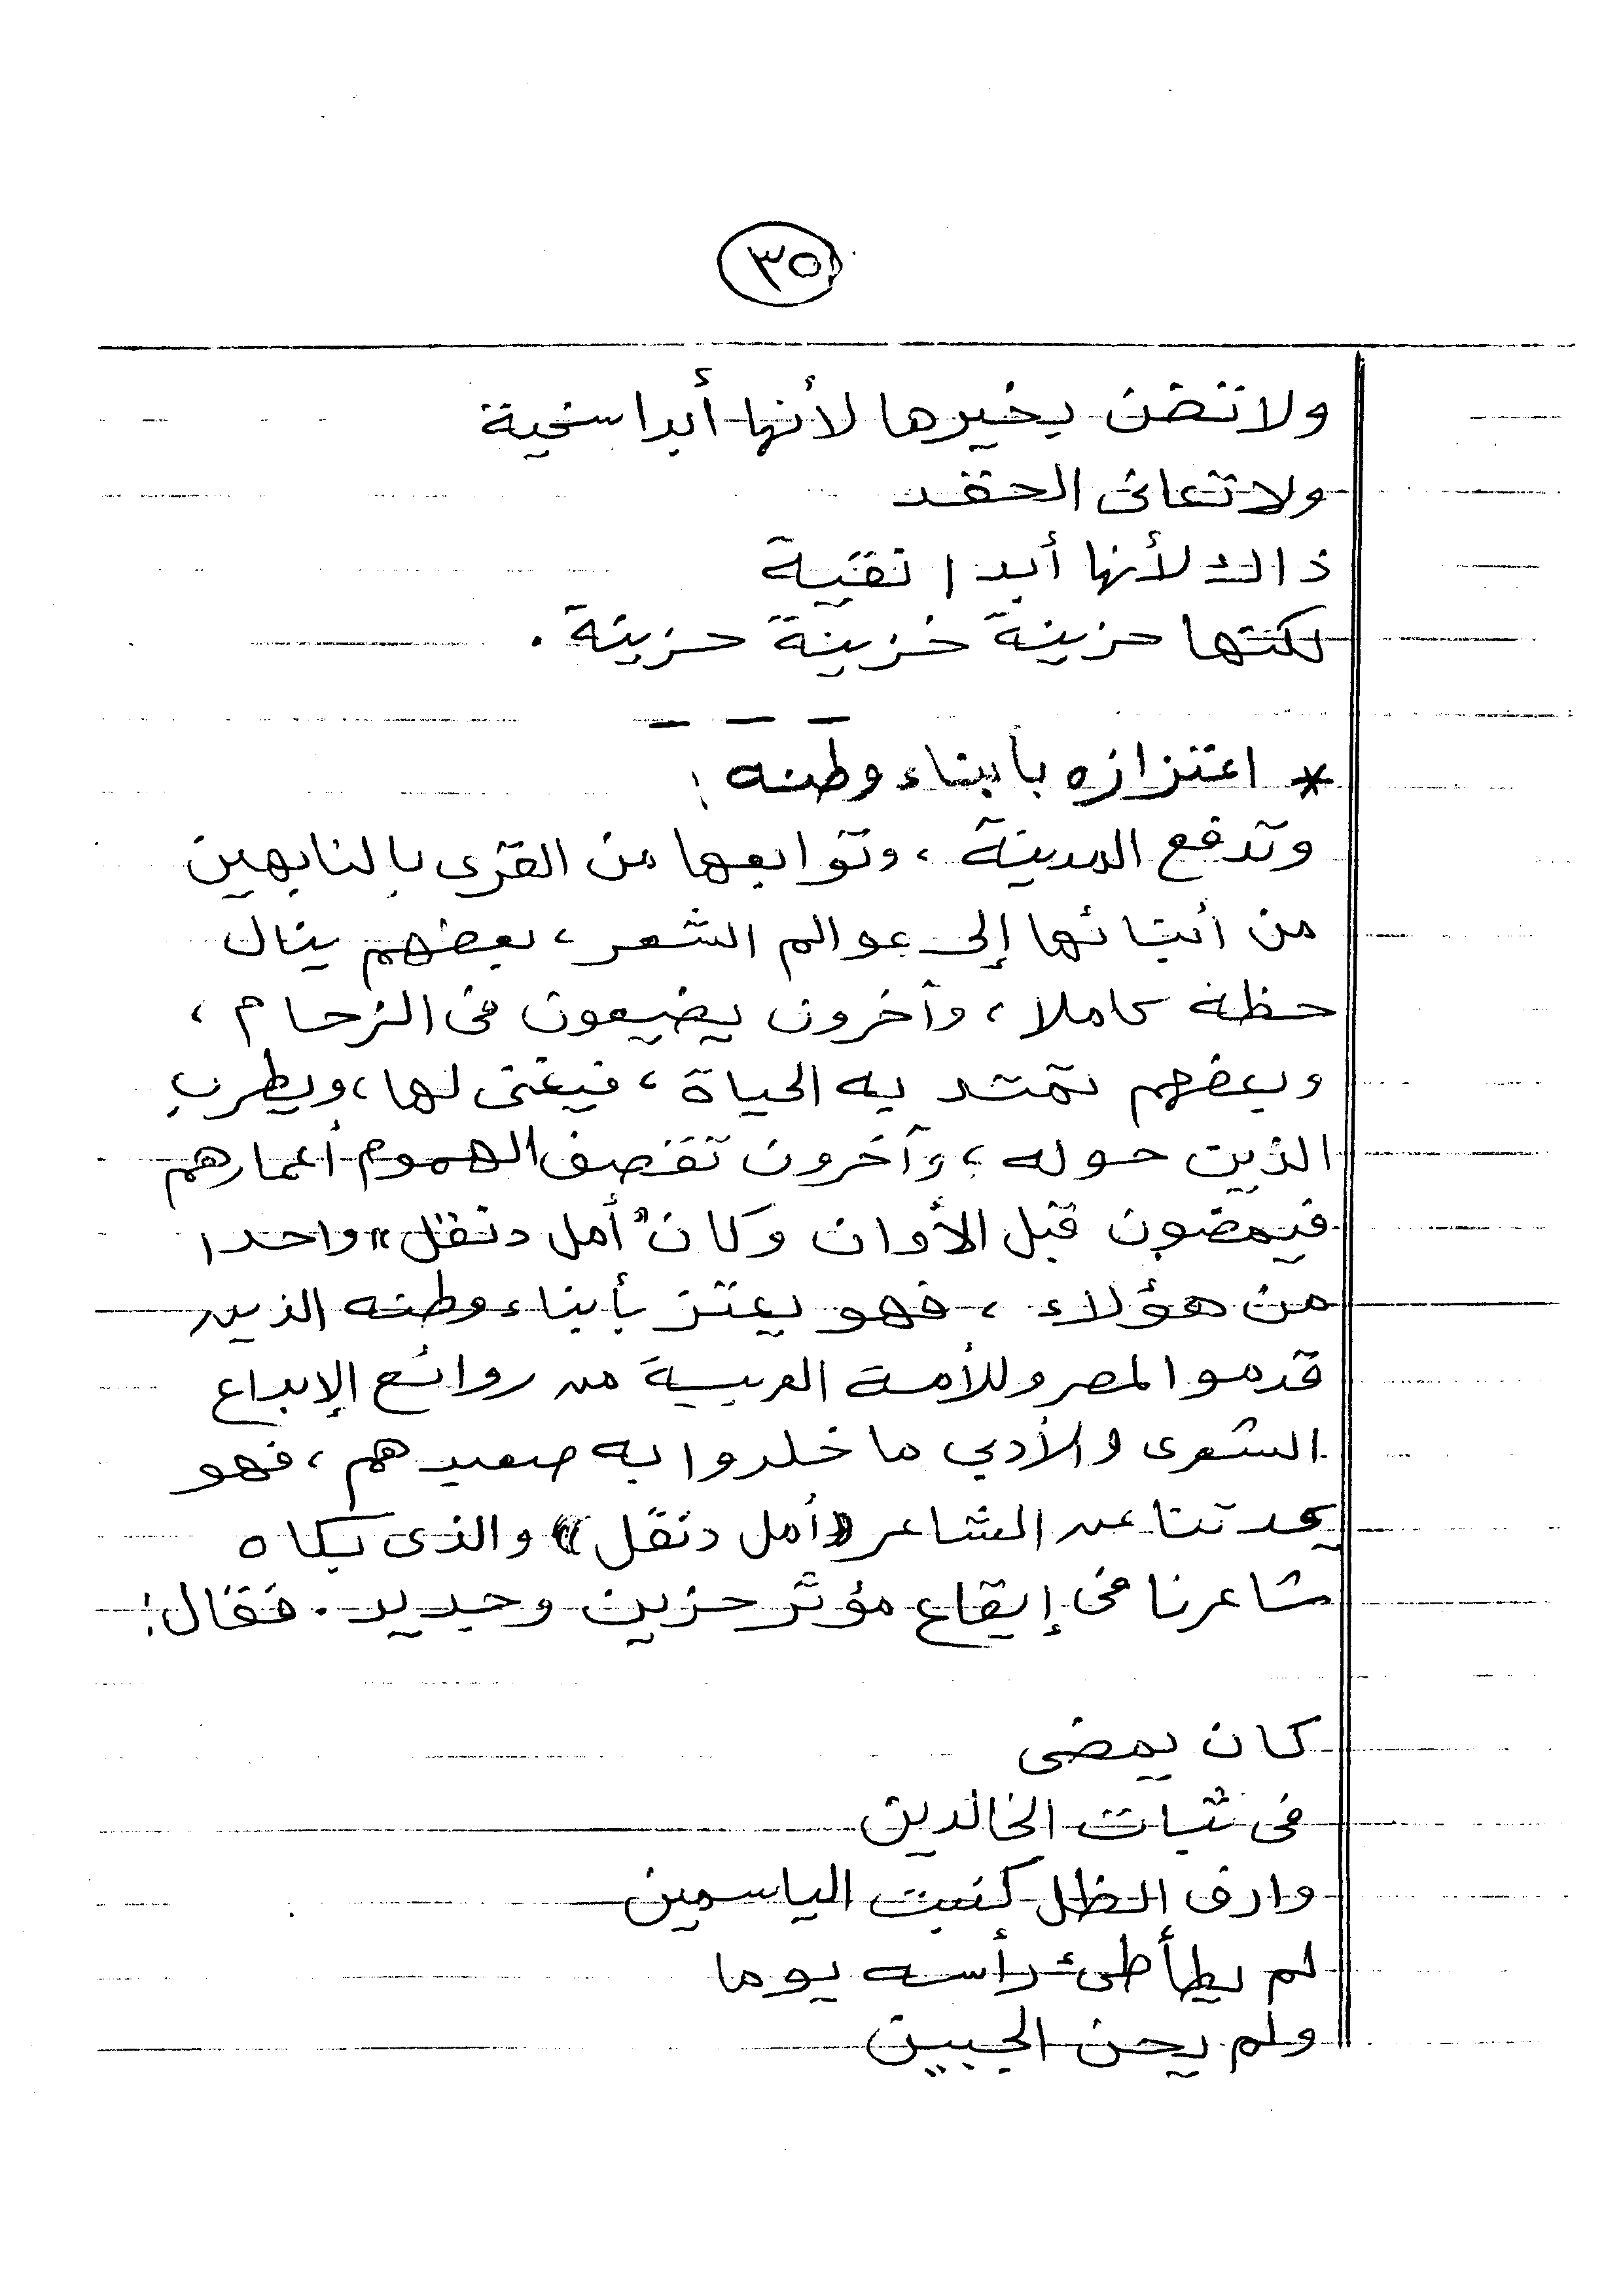 ٣٥
ولا تضن بخيرها لأنها أبدا سخية
ولا تعانى الحقد
ذاك لأنها أبدا نقية
لكنها حزينة حزينة حزينة .
* اعتزازه بأبناء وطنه :
وتدفع المدينة ، وتوابعها من القرى بالنابهين
من أبنائها إلى عوالم الشعر ، بعضهم ينال
حظه كاملا ، وآخرون يضيعون فى الزحام ،
وبعضهم تمتد به الحياة ، فيغنى لها ، ويطرب
الذين حوله ، وآخرون تقصف الهموم أعمارهم
فيمضون قبل الأوان وكان "أمل دنقل" واحدا
من هؤلاء ، فهو يعتز بأبناء وطنه الذين
قدموا لمصر وللأمة العربية من روائع الإبداع
الشعرى والأدبي ما خلدوا به صعيدهم ، فهو
يحدثنا عن الشاعر «أمل دنقل» والذى بكاه
شاعرنا فى إيقاع مؤثر حزين وجديد . فقال :
كان يمضى
فى ثبات الخالدين
وارف الظل كنبت الياسمين
لم يطأطئ رأسه يوما
ولم يحن الجبين